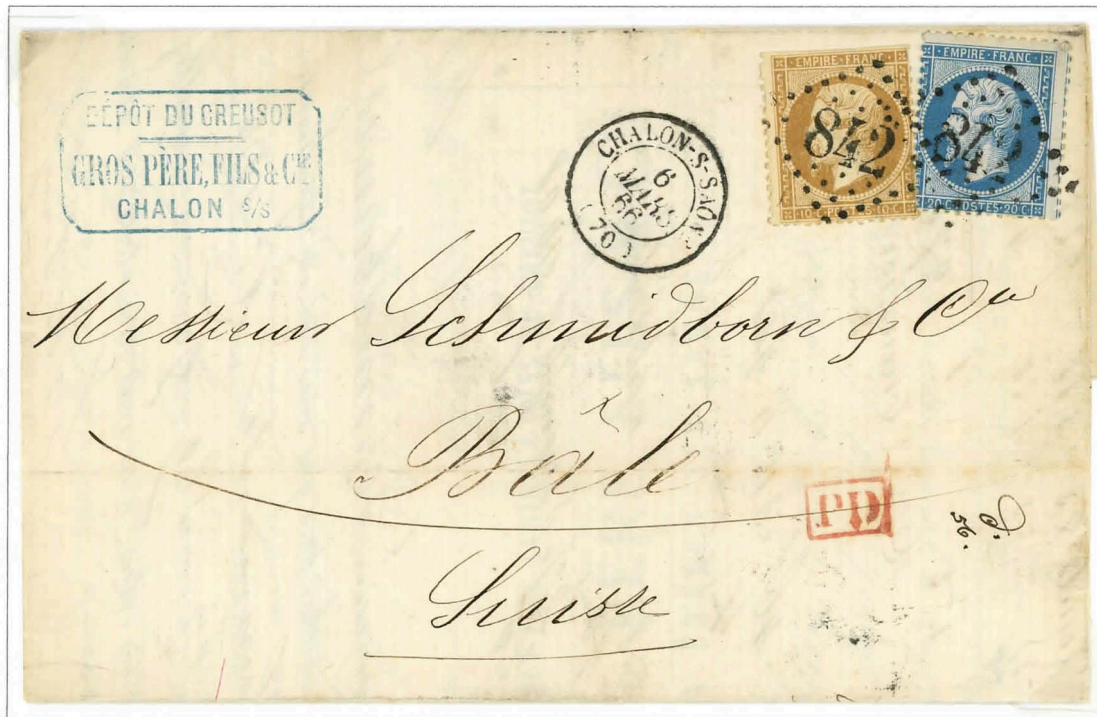 DÉPÔT DU CREUSOT
GROS PÈRE, FILS & CIE
CHALON S/S
CHALON-S-SAÔNE
6
MARS
66
(70)
EMPIRE FRANC
842
10 C POSTES 10 C
EMPIRE FRANC
842
20 C POSTES 20 C
Messieurs Schmidborn & Cie
Bâle
Suisse
PD
56.